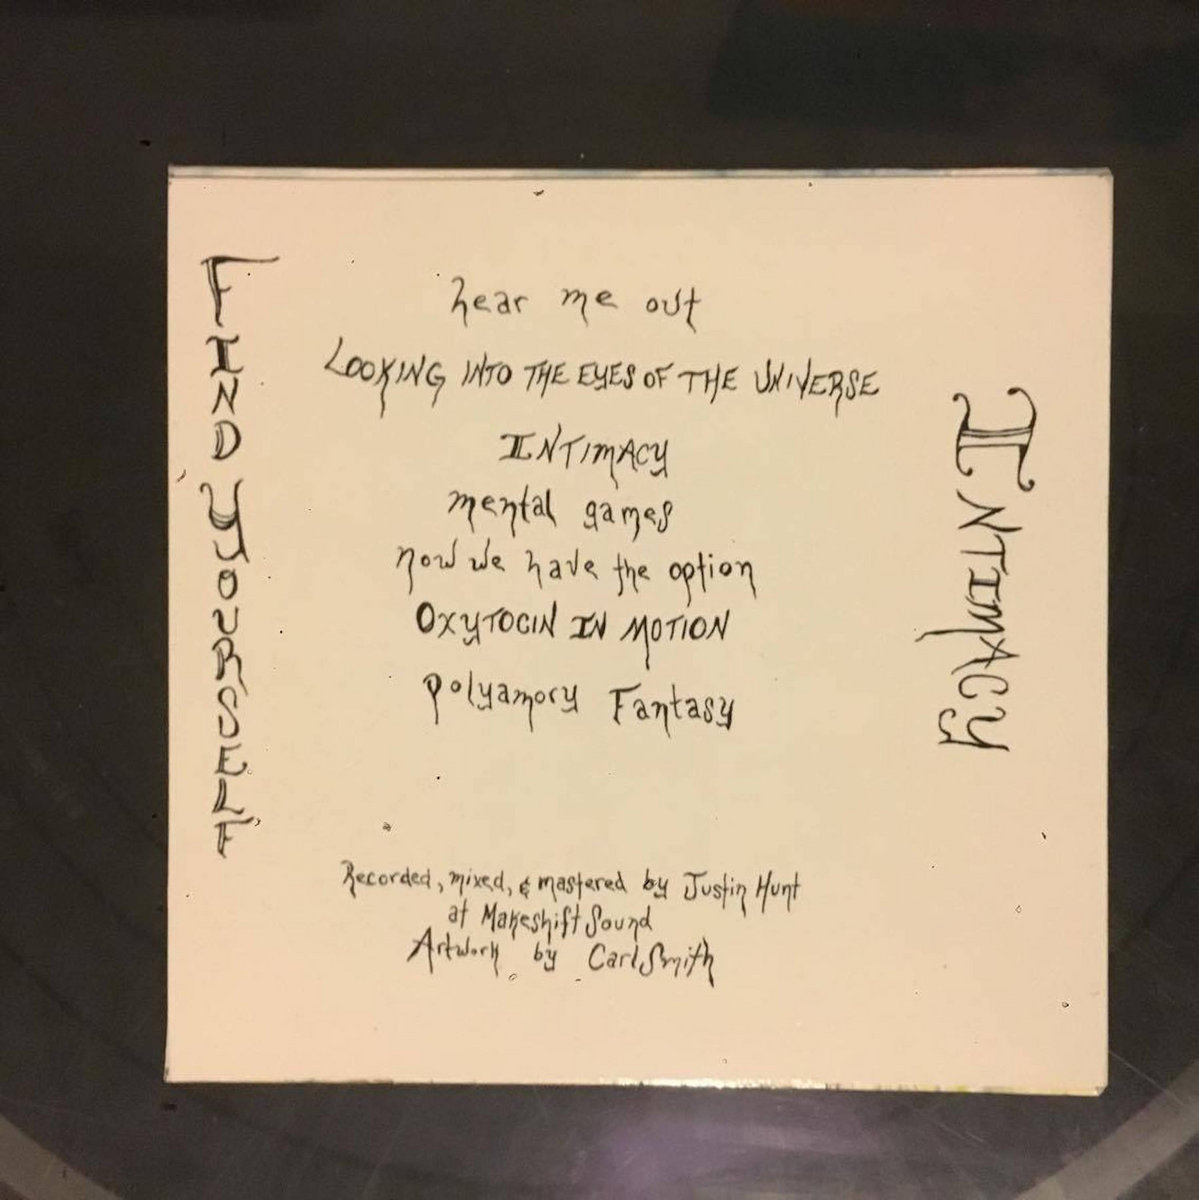 FIND YOURSELF
hear me out
LOOKING INTO THE EYES OF THE UNIVERSE
INTIMACY
mental games
now we have the option
OXYTOCIN IN MOTION
polyamory Fantasy
INTIMACY
Recorded, mixed, & mastered by Justin Hunt
at Makeshift Sound
Artwork by Carl Smith